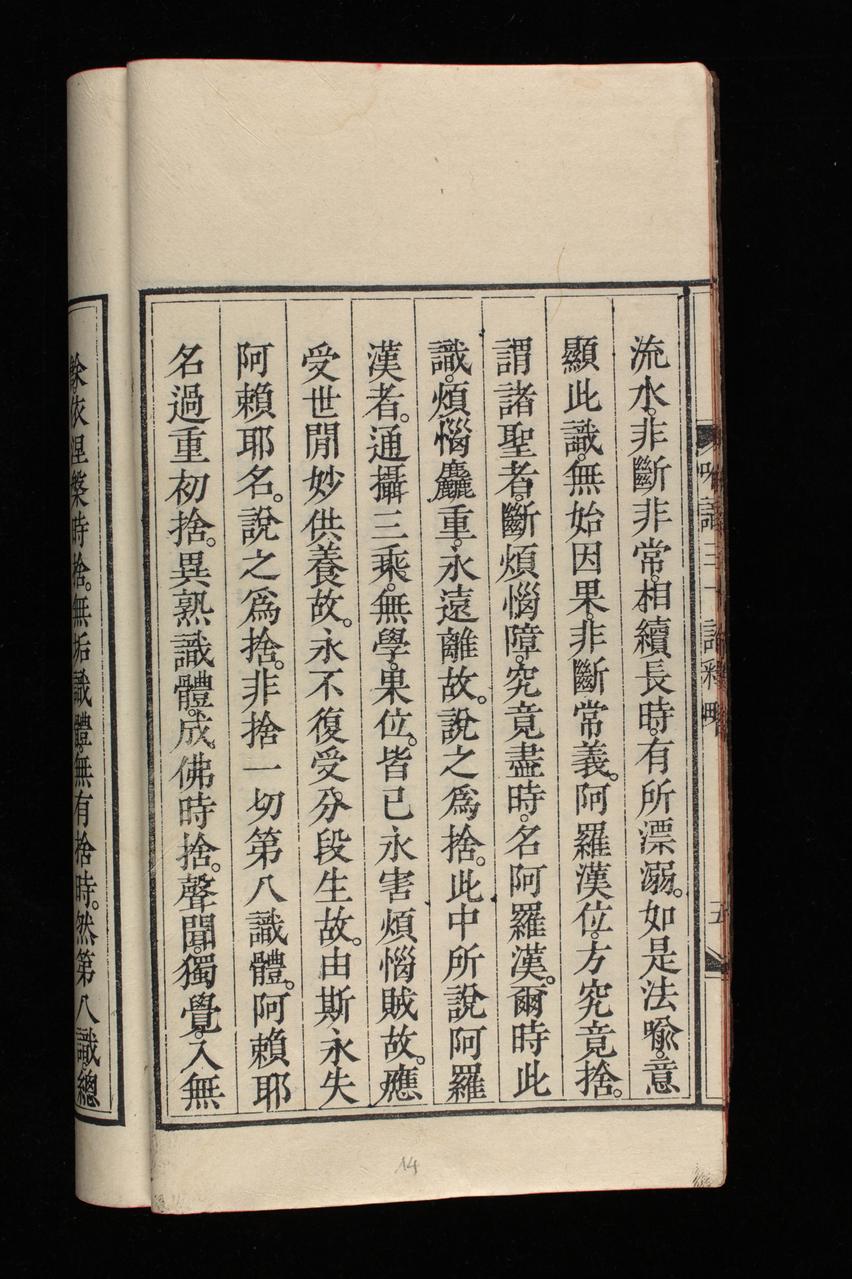 流水。非斷非常。相續長時。有所漂溺。如是法喻。意
顯此識。無始因果。非斷常義。阿羅漢位。方究竟捨。
謂諸聖者。斷煩惱障。究竟盡時。名阿羅漢。爾時此
識。煩惱麤重。永遠離故。說之爲捨。此中所說阿羅
漢者。通攝三乘。無學。果位。皆已永害煩惱賊故。應
受世閒妙供養故。永不復受分段生故。由斯永失
阿賴耶名。說之爲捨。非捨一切第八識體。阿賴耶
名過重初捨。異熟識體。成佛時捨。聲聞。獨覺。入無
餘依涅槃時捨。無垢識體。無有捨時。然第八識。總
五
14